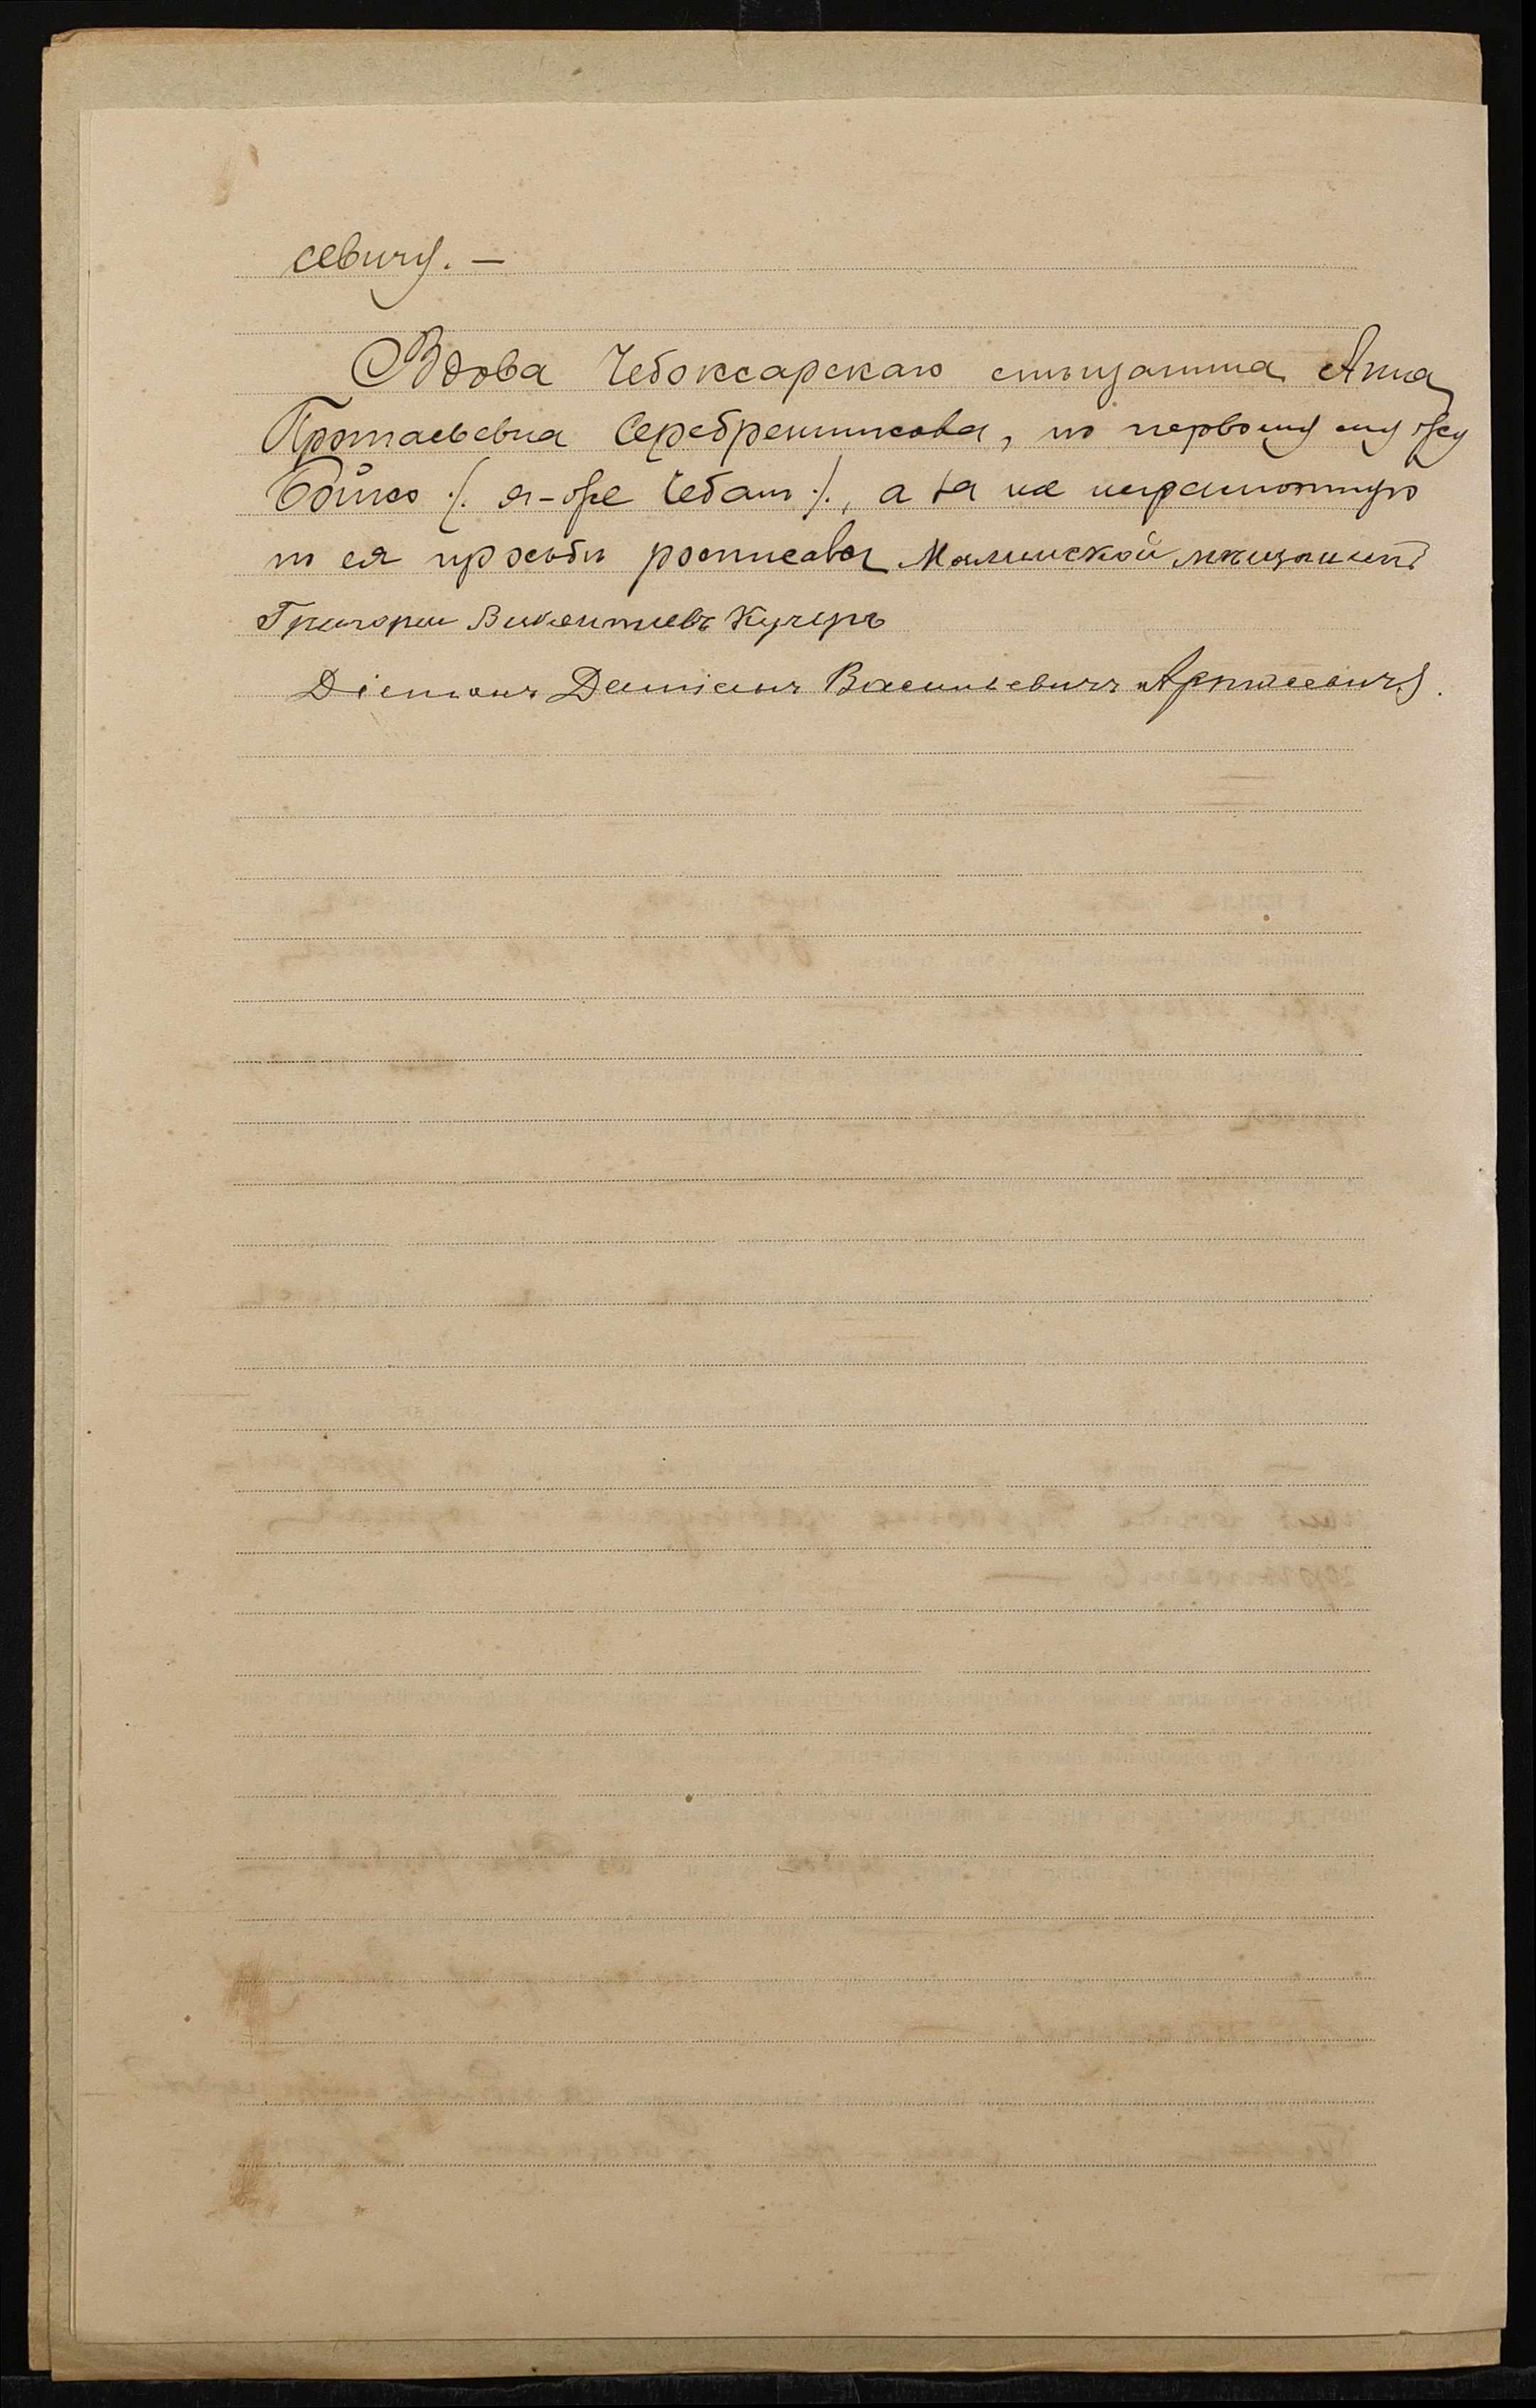 севичъ. —
Вдова Чебоксарскаго мѣщанина Анна
Протасьевна Серебренникова, по первому мужу
Бойко /. я-же Чебан ./, а за нее неграмотную
по ея просьбѣ росписався Малинской мѣщанинъ
Григории Викентиевъ Кучеръ
Діаконъ Даміанъ Васильевичъ Артасевичъ.